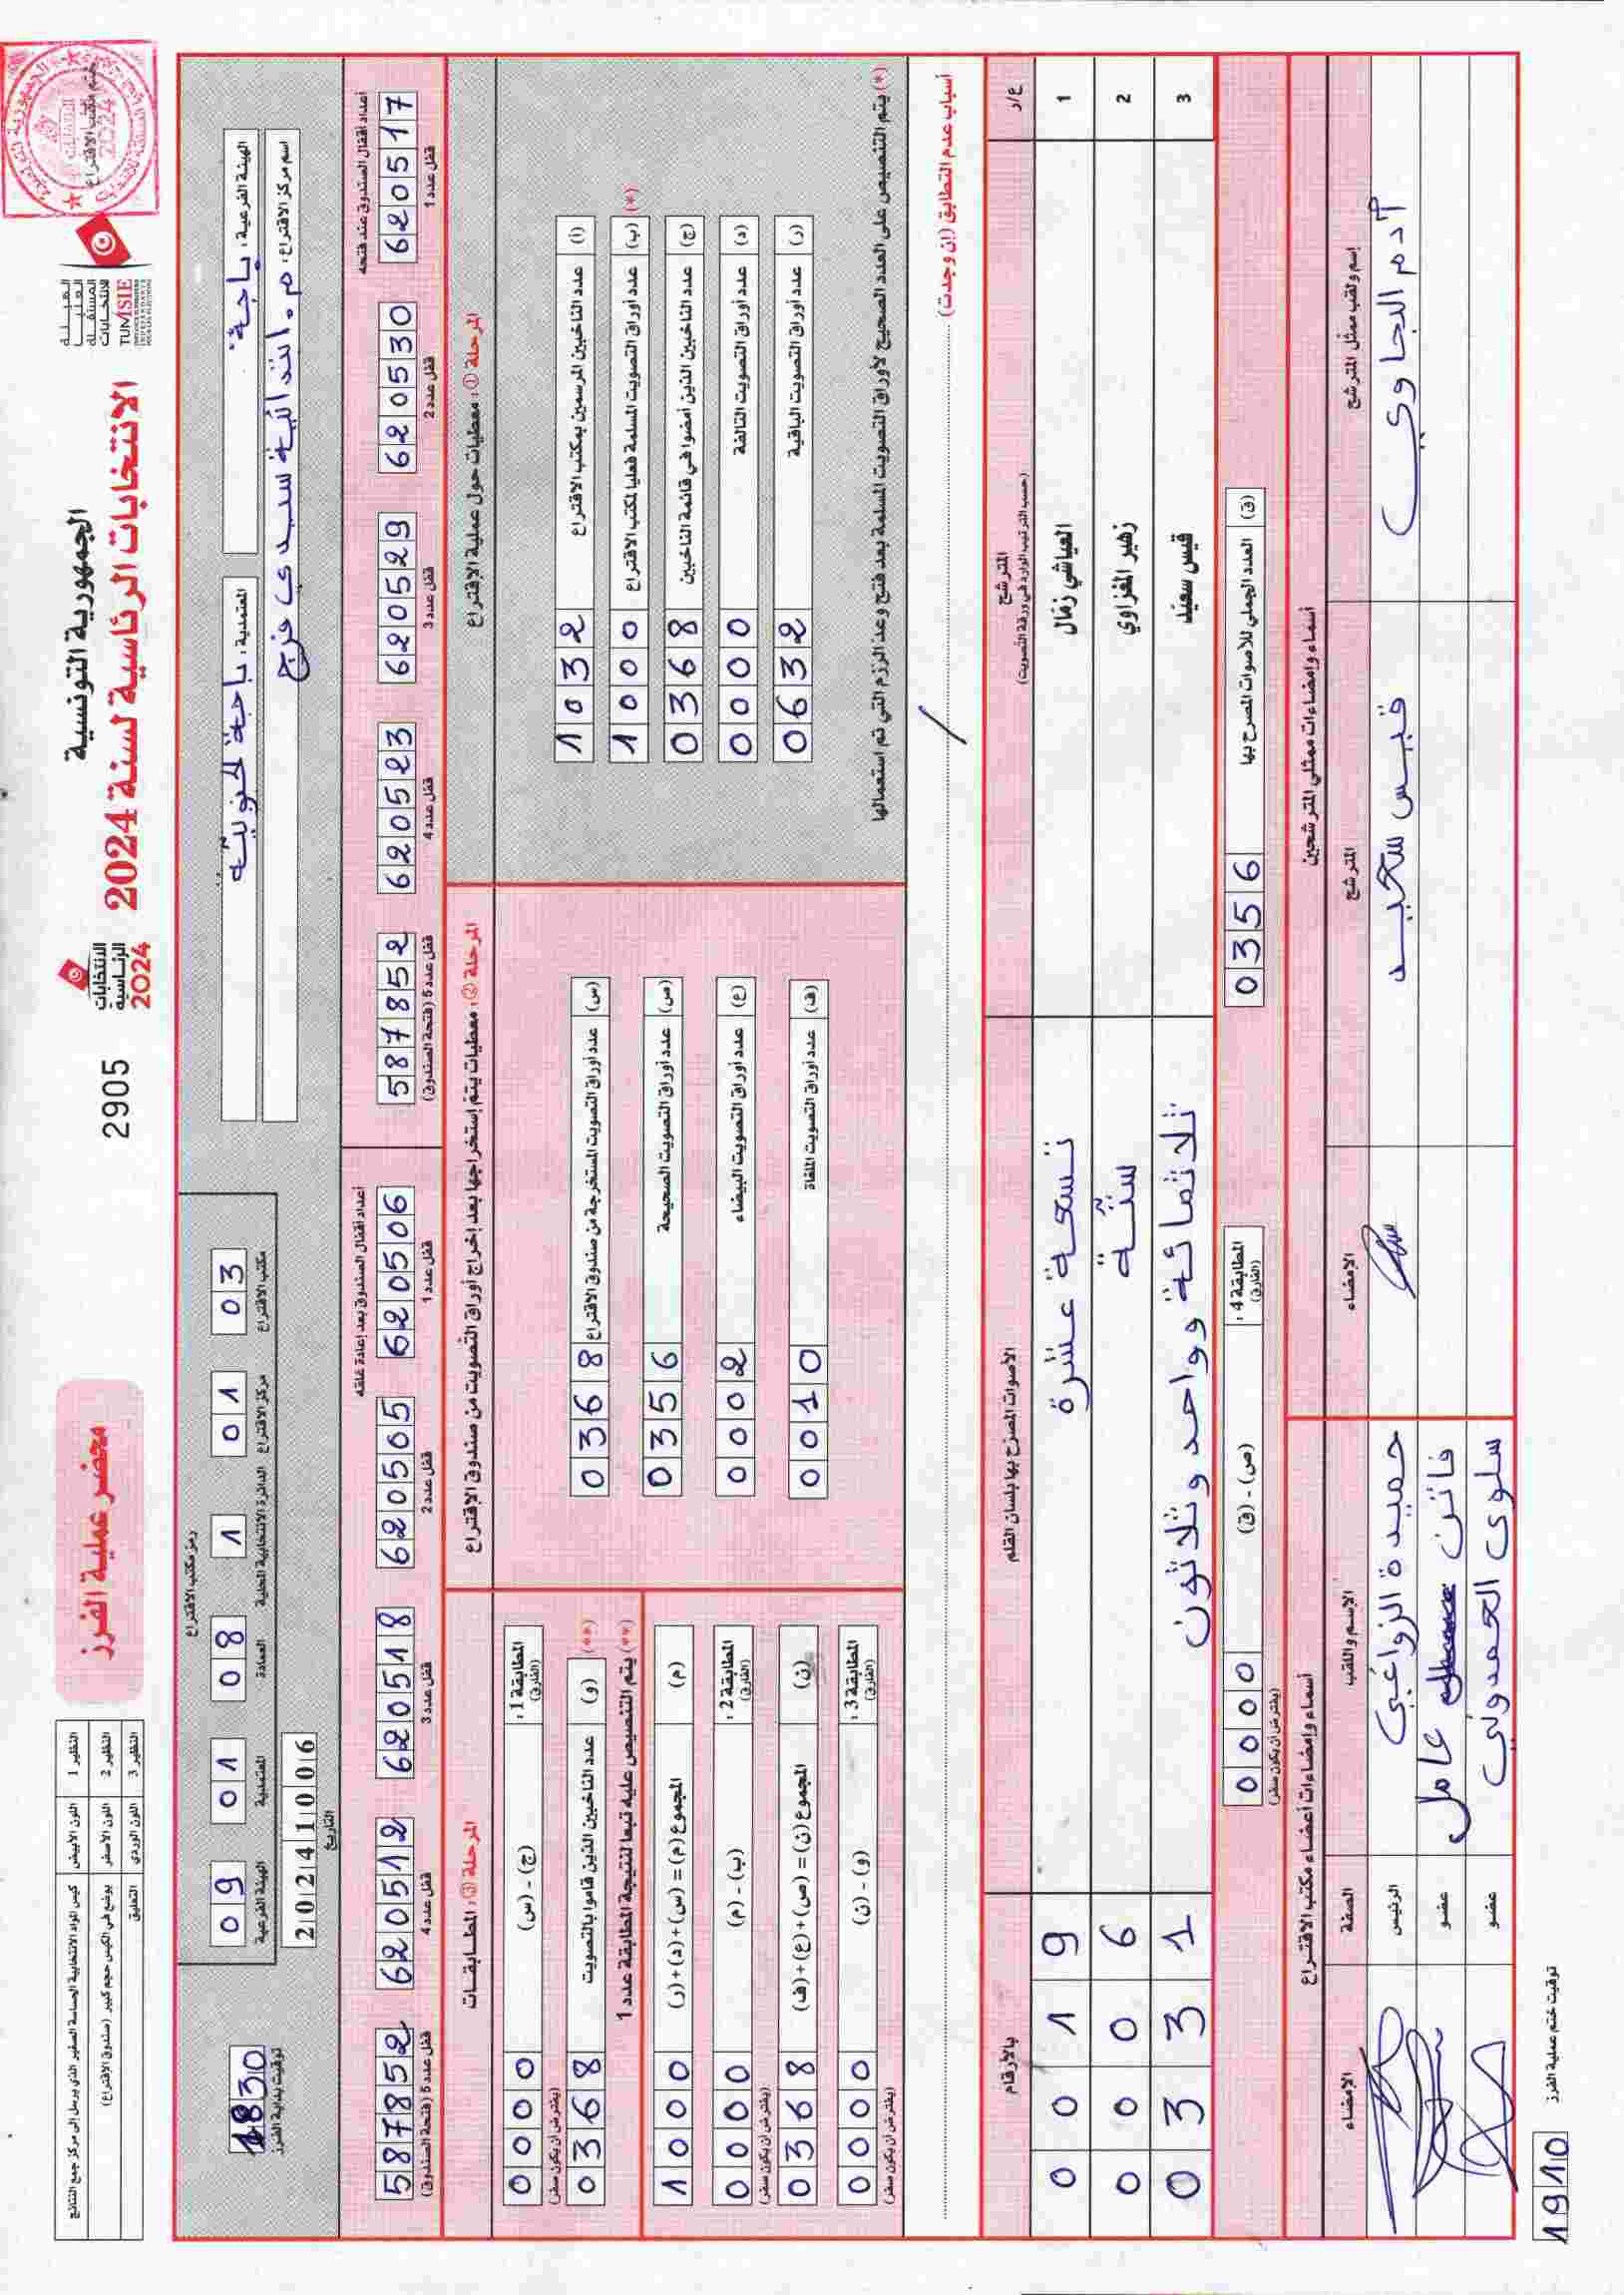 الجمهورية التونسية
الانتخابات الرئاسية لسنة 2024
الهيئة العليا المستقلة للانتخابات
TUNISIE
ختم مكتب الاقتراع
الانتخابات الرئاسية 2024
2905
محضر عملية الفرز
النظير 1 اللون الأبيض كيس المواد الانتخابية الحساسة الصغير الذي يرسل إلى مركز جمع النتائج
النظير 2 اللون الأصفر يوضع في الكيس حجم كبير (صندوق الاقتراع)
النظير 3 اللون الوردي التعليق
الهيئة الفرعية: باجة
المعتمدية: باجة الجنوبية
اسم مركز الاقتراع: م. ابتدائية سيدي فرج
رمز مكتب الاقتراع
مكتب الاقتراع 03
مركز الاقتراع 01
الدائرة الانتخابية المحلية 1
العمادة 08
المعتمدية 01
الهيئة الفرعية 09
التاريخ 20241006
توقيت بداية الفرز 1830
أعداد أقفال الصندوق عند فتحه
6205517 قفل عدد 1
6205530 قفل عدد 2
6205529 قفل عدد 3
6205523 قفل عدد 4
5878552 قفل عدد 5 (فتحة الصندوق)
أعداد أقفال الصندوق بعد إعادة غلقه
6205506 قفل عدد 1
6205505 قفل عدد 2
6205518 قفل عدد 3
6205512 قفل عدد 4
5878552 قفل عدد 5 (فتحة الصندوق)
المرحلة ①: معطيات حول عملية الاقتراع
(أ) عدد الناخبين المرسمين بمكتب الاقتراع 1032
(*) (ب) عدد أوراق التصويت المسلمة فعليا لمكتب الاقتراع 1000
(ج) عدد الناخبين الذين أمضوا في قائمة الناخبين 0368
(د) عدد أوراق التصويت التالفة 0000
(ر) عدد أوراق التصويت الباقية 0632
(*) يتم التنصيص على العدد الصحيح لأوراق التصويت المسلمة بعد فتح وعد الرزم التي تم استعمالها
المرحلة ②: معطيات يتم إستخراجها بعد إخراج أوراق التصويت من صندوق الاقتراع
(س) عدد أوراق التصويت المستخرجة من صندوق الاقتراع 0368
(ص) عدد أوراق التصويت الصحيحة 0356
(ع) عدد أوراق التصويت البيضاء 0002
(ف) عدد أوراق التصويت الملغاة 0010
المرحلة ③: المطابقات
المطابقة 1: (الفارق) (ج) - (س) 0000 (يفترض أن يكون صفر)
(**) (و) عدد الناخبين الذين قاموا بالتصويت 0368
(**) يتم التنصيص عليه تبعا لنتيجة المطابقة عدد 1
(م) المجموع (م) = (س)+(د)+(ر) 1000
المطابقة 2: (الفارق) (ب) - (م) 0000 (يفترض أن يكون صفر)
(ن) المجموع (ن) = (ص)+(ع)+(ف) 0368
المطابقة 3: (الفارق) (و) - (ن) 0000 (يفترض أن يكون صفر)
أسباب عدم التطابق (إن وجدت)
ع/ر المترشح (حسب الترتيب الوارد في ورقة التصويت) الأصوات المصرح بها بلسان القلم بالأرقام
1 العياشي زمال تسعة عشرة 0019
2 زهير المغزاوي ستّة 0006
3 قيس سعيد ثلاثمائة وواحد وثلاثون 0331
(ق) العدد الجملي للأصوات المصرح بها 0356
المطابقة 4: (الفارق) (ص) - (ق) 0000 (يفترض أن يكون صفر)
أسماء وإمضاءات ممثلي المترشحين
إسم ولقب ممثل المترشح المترشح الإمضاء
آدم الجاوي قيس سعيد
أسماء وإمضاءات أعضاء مكتب الاقتراع
الإسم واللقب الصفة الإمضاء
حميدة الزواغي الرئيس
فاتن عامل عضو
سلوى الحمدوني عضو
توقيت ختم عملية الفرز 1910